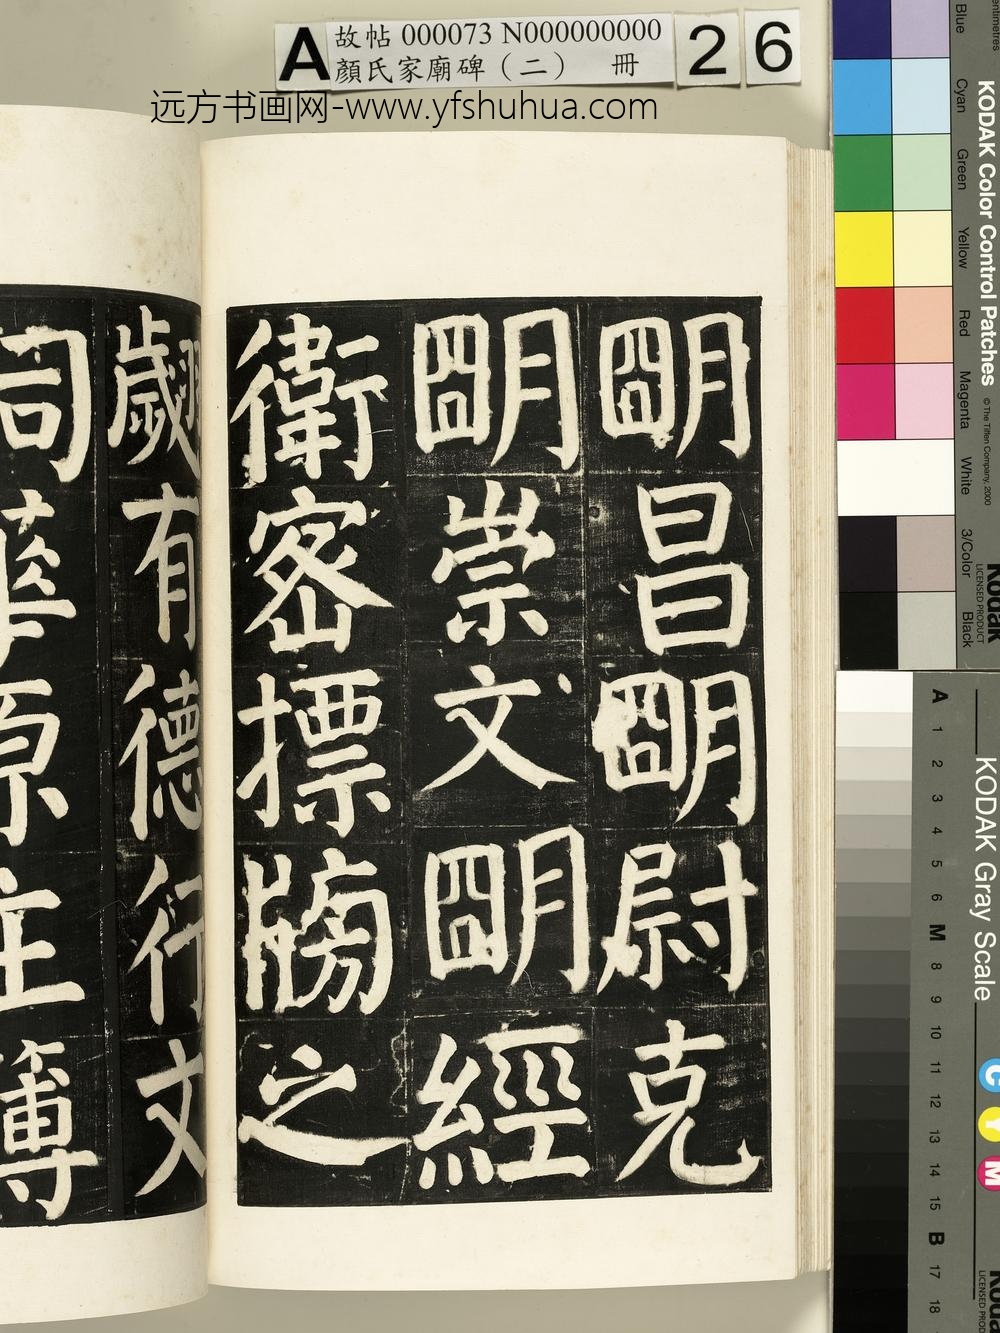 A 故帖 000073 N000000000 26
顏氏家廟碑（二） 冊
远方书画网-www.yfshuhua.com
明昌明尉克
明崇文明經
衛密摽牓之
歲有德行文
司華原主簿
KODAK Color Control Patches
© The Tiffen Company, 2000
Kodak
LICENSED PRODUCT
Blue
Cyan
Green
Yellow
Red
Magenta
White
3/Color
Black
KODAK Gray Scale
A 1 2 3 4 5 6 M 8 9 10 11 12 13 14 15 B 17 18
C
Y
M